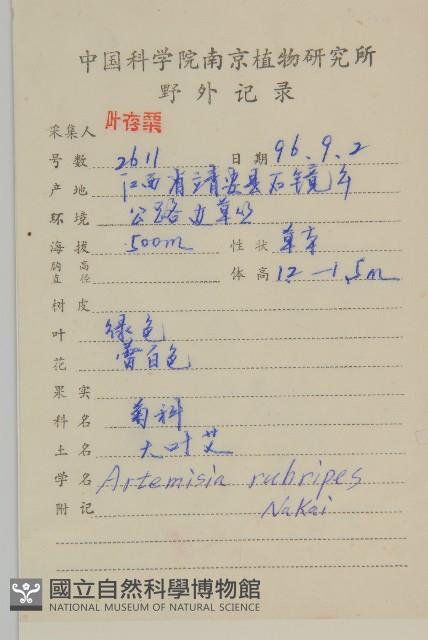 中国科学院南京植物研究所
野外记录
采集人 叶存粟
号数 2611 日期 96.9.2
产地 江西省靖安县石镜乡
环境 公路边草丛
海拔 500m 性状 草本
胸高直径 体高 1.2—1.5m
树皮
叶 绿色
花 蕾白色
果实
科名 菊科
土名 大叶艾
学名 Artemisia rubripes
附记 Nakai
國立自然科學博物館
NATIONAL MUSEUM OF NATURAL SCIENCE